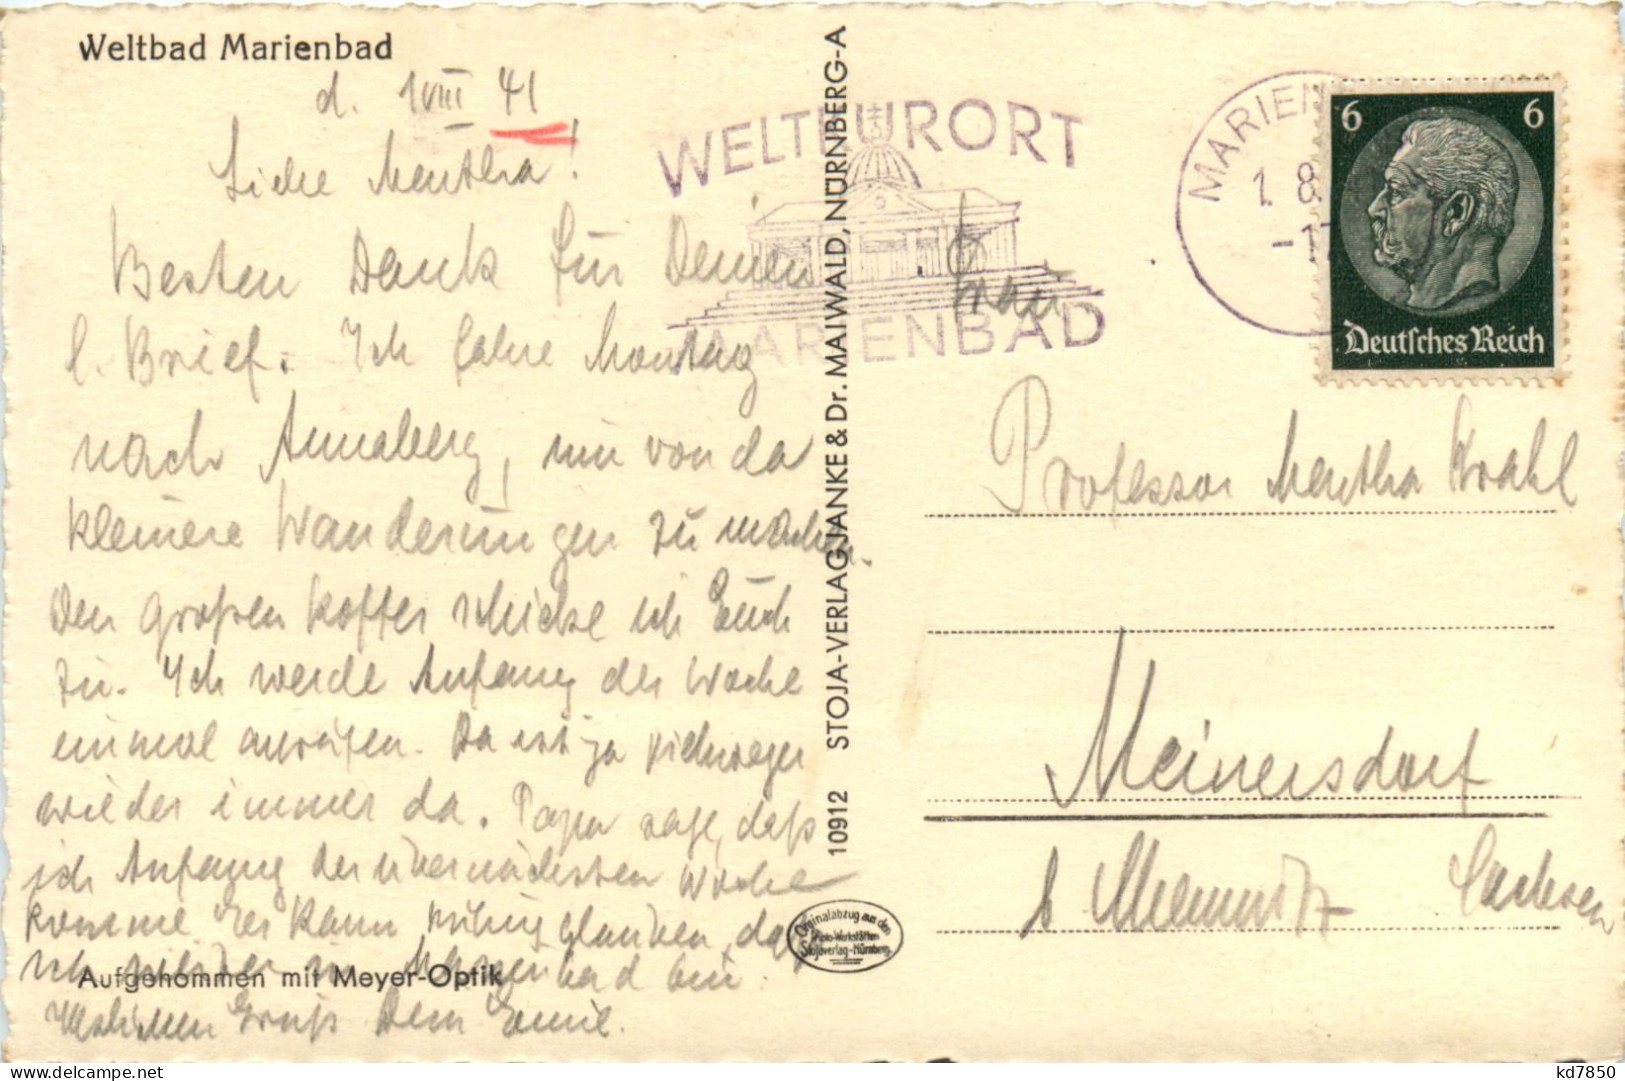 Weltbad Marienbad
d. 1 VIII 41
Liebe Martha!
Besten Dank für Deinen
l. Brief. Ich fahre Montag
nach Annaberg, um von da
kleinere Wanderungen zu machen.
Den großen Koffer schicke ich Euch
zu. Ich werde Anfang der Woche
einmal anrufen. Da ist ja
wieder immer da. Papa sage, daß
ich Anfang der übernächsten Woche
komme. Er kann ruhig glauben, daß
ich wieder in Marienbad bin.
Herzlichen Gruß Dein Emil.
Aufgenommen mit Meyer-Optik
10912 STOJA-VERLAG JANKE & Dr. MAIWALD, NÜRNBERG-A
Originalabzug aus den
Foto-Werkstätten
Stojaverlag-Nürnberg
WELTKURORT
MARIENBAD
MARIEN
1. 8.
-17
6 6
Deutsches Reich
Frau
Professor Martha Krahl
Meinersdorf
b Chemnitz Sachsen
kd7850